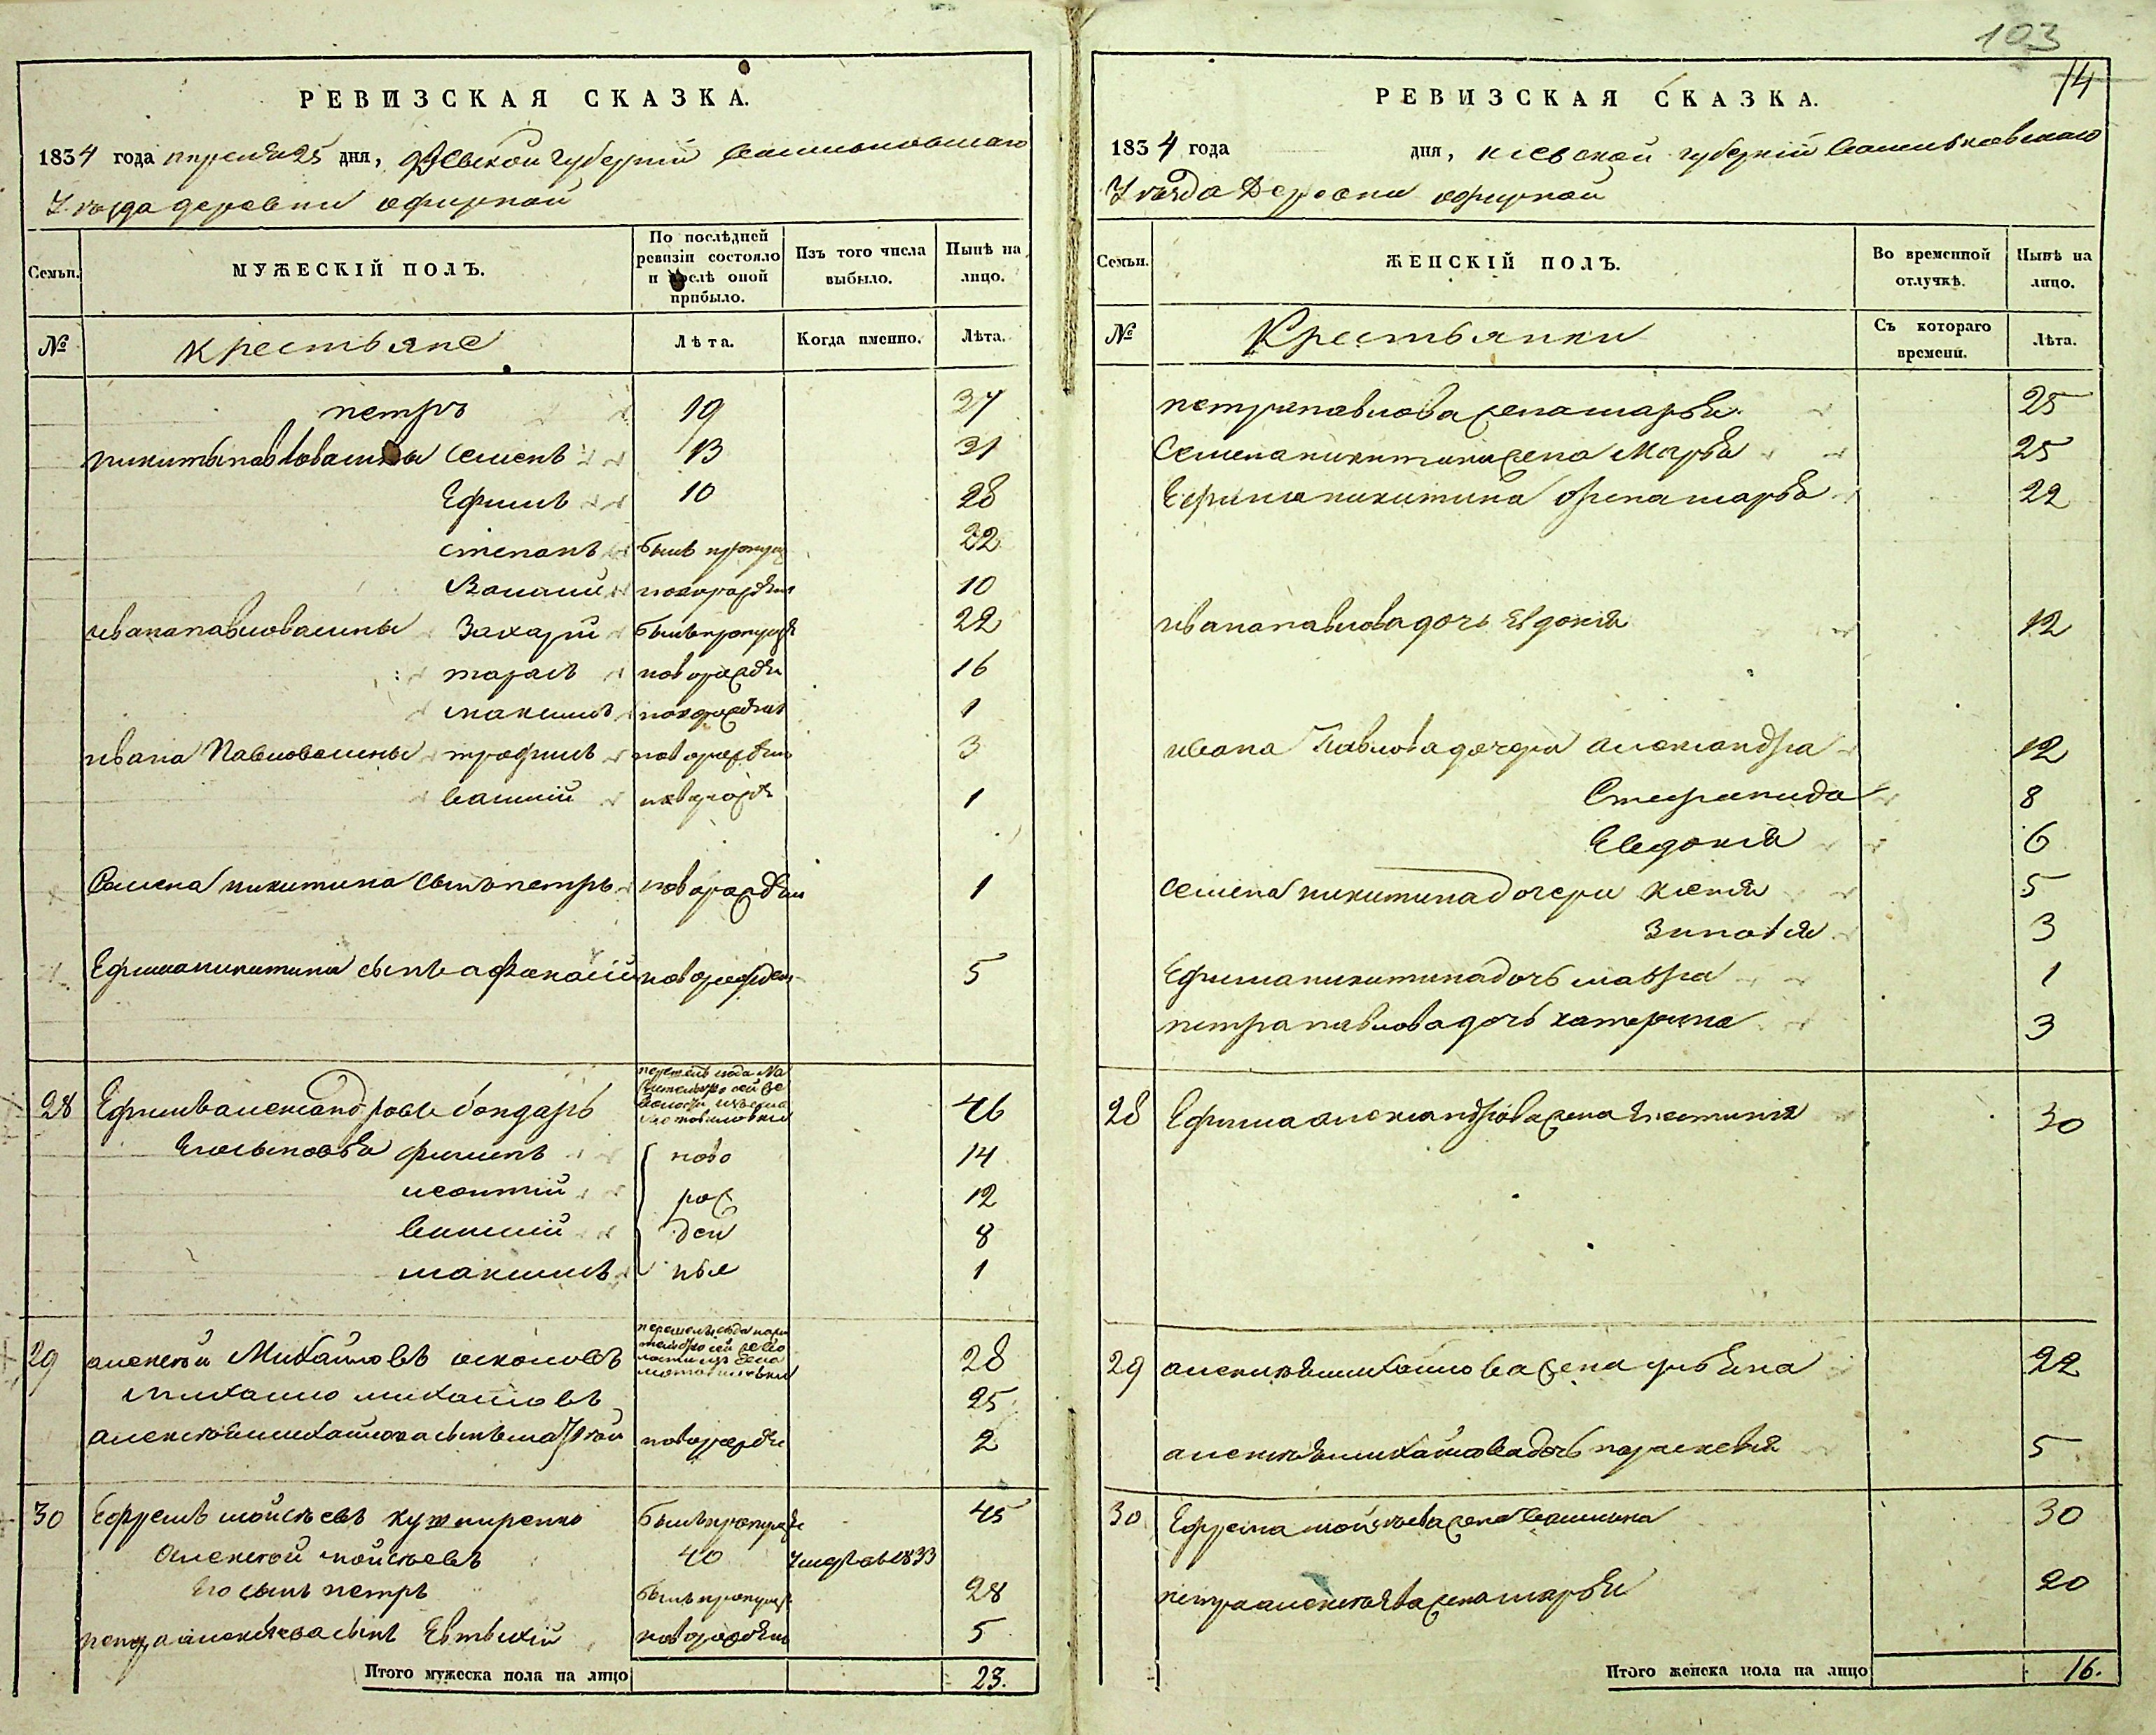 103
РЕВИЗСКАЯ СКАЗКА.
1834 года апреля 25 дня, Киевской губернии Васильковскаго
Уезда деревни офирной
Семьи. МУЖЕСКІЙ ПОЛЪ. По послѣдней ревизіи состояло и послѣ оной прибыло. Изъ того числа выбыло. Нынѣ на лицо.
№ Крестьяне Лѣта. Когда именно. Лѣта.
петръ 19 37
никиты павлова сины семенъ 13 31
Ефимъ 10 28
степанъ былъ пропущ 22
10
ивана павлова сины Захарий былъ пропущ 22
тарасъ новорожде 16
максимъ новорожден 1
ивана Павлова сины трофимъ новорожден 3
василий новорожд 1
Семена никитина сынъ петръ новорожден 1
Ефима никитина сынъ афанасий новорожден 5
28 Ефимъ александровъ бондарь 46
Его сыновья филипъ ново 14
леонтий рож 12
василий ден 8
максимъ ные 1
29 алексей Михайловъ 28
михайло михайловъ 25
алексея михайлова сынъ матвей новорожде 2
30 Ефремъ мойсеевъ кушниренко былъ пропуще 45
алексей мойсеевъ 40 умеръ в 1833
Его сынъ петръ былъ пропуще 28
петра алексеева сынъ Евтихий новорожден 5
Итого мужеска пола на лицо 23.
14
РЕВИЗСКАЯ СКАЗКА.
1834 года дня, киевской губернии Васильковскаго
Уезда Деревни офирной
Семьи. ЖЕНСКІЙ ПОЛЪ. Во временной отлучкѣ. Нынѣ на лицо.
№ Крестьянки Съ котораго времени. Лѣта.
петра павлова жена марья 25
Семена никитина жена Марья 25
Ефима никитина жена марья 22
ивана павлова дочь Евдокия 12
ивана Павлова дочери александра 12
Степанида 8
Евдокия 6
семена никитина дочери 5
Зиновия 3
Ефима никитина дочь мавра 1
петра павлова дочь катерина 3
28 Ефима александрова жена 30
29 алексея михайлова жена ульяна 22
алексея михайлова дочь параскевия 5
30 Ефрема мойсеева жена 30
петра алексеева жена марья 20
Итого женска пола на лицо 16.